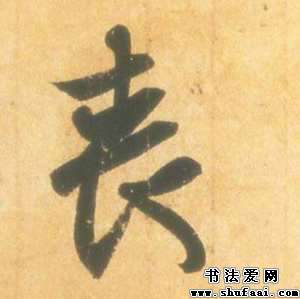 丧
书法爱网
www.shufaai.com